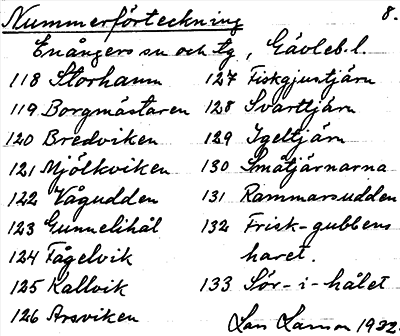 Nummerförteckning 8.
Enångers sn och tg, Gävleb. l.
118 Storhamn
119 Borgmästaren
120 Bredviken
121 Mjölkviken
122 Vågudden
123 Gunnelihål
124 Fågelvik
125 Kallvik
126 Arsviken
127 Fiskgjustjärn
128 Svarttjärn
129 Igeltjärn
130 Småtjärnarna
131 Rammarsudden
132 Frisk-gubbens
haret.
133 Sör-i-hålet
Lars Larsson 1932.